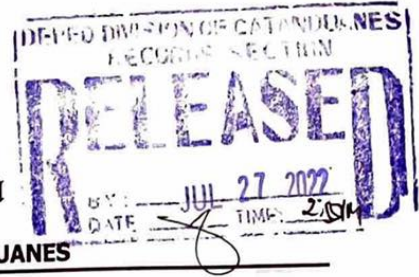 DEPED DIVISION OF CATANDUANES
RECORDS SECTION
RELEASED
BY:
JUL 27 2022
DATE TIME:
UANES